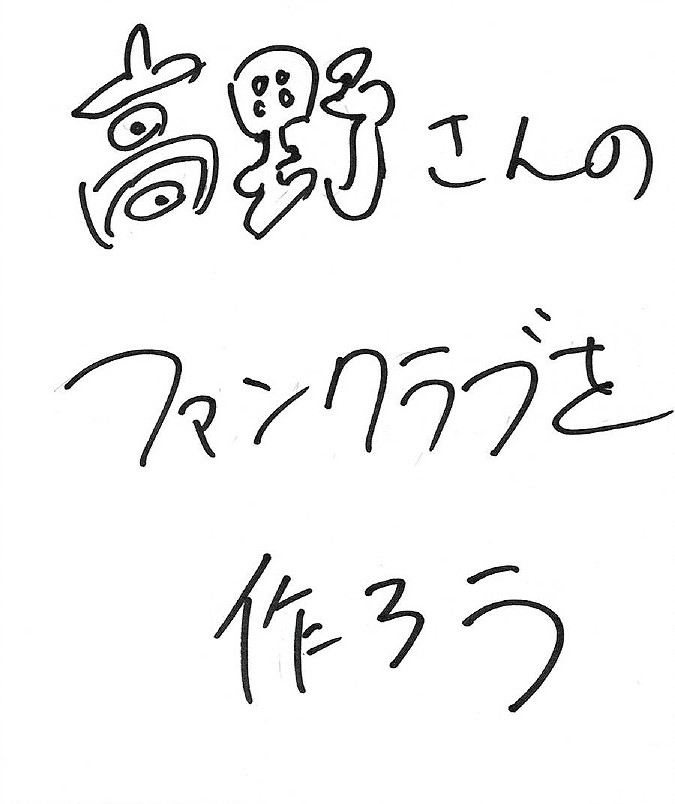 高野さんの
ファンクラブを
作ろう